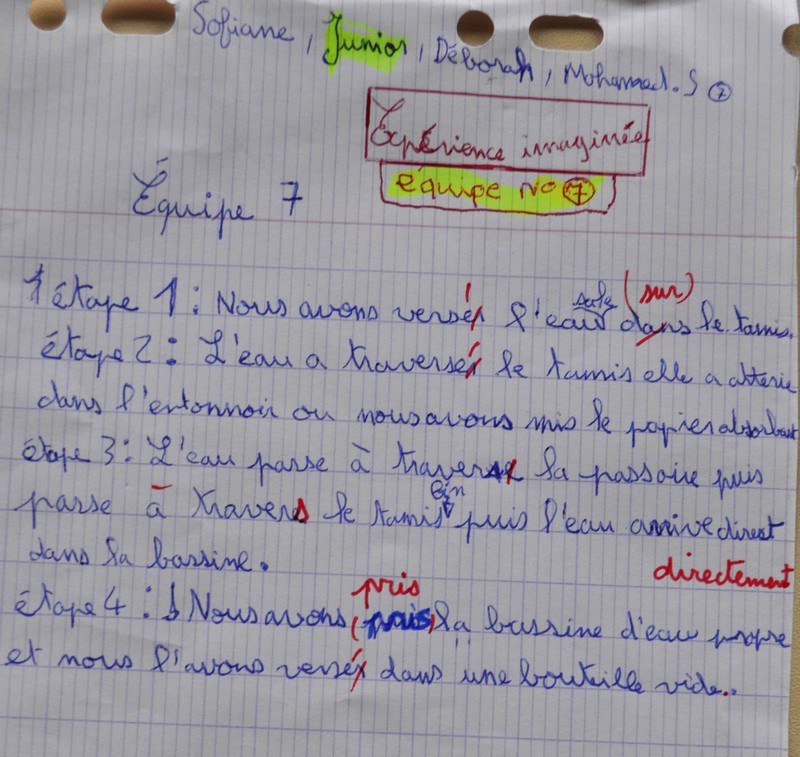 Sofiane, Junior, Déborah, Mohamed.S ⑦
Expérience imaginée
équipe No ⑦
Équipe 7
étape 1 : Nous avons versé l'eau sale dans (sur) le tamis.
étape 2 : L'eau a traversé le tamis elle a atterie
dans l'entonnoir ou nous avons mis le papier absorbant
étape 3 : L'eau passe à travers la passoire puis
passe à travers le tamis fin puis l'eau arrive direct
dans la bassine.
directement
pris
étape 4 : Nous avons (prais) la bassine d'eau propre
et nous l'avons versé dans une bouteille vide..